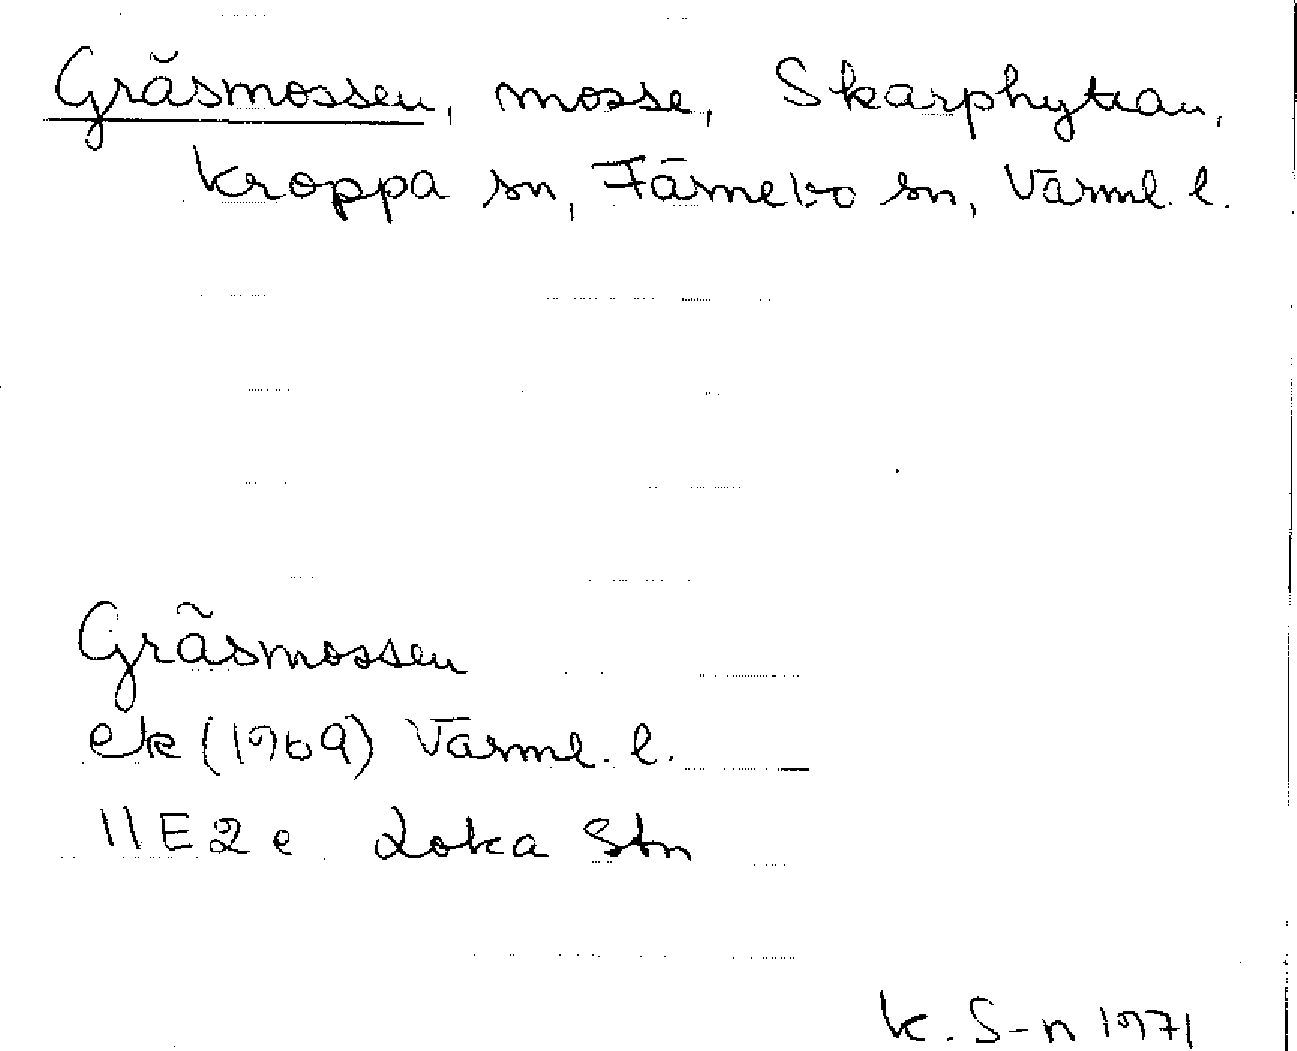 Gräsmossen, mosse, Skarphyttan,
Kroppa sn, Färnebo sn, Värml. l.
Gräsmossen
ek (1969) Värml. l.
11E2e Loka Stn
K. S-n 1971